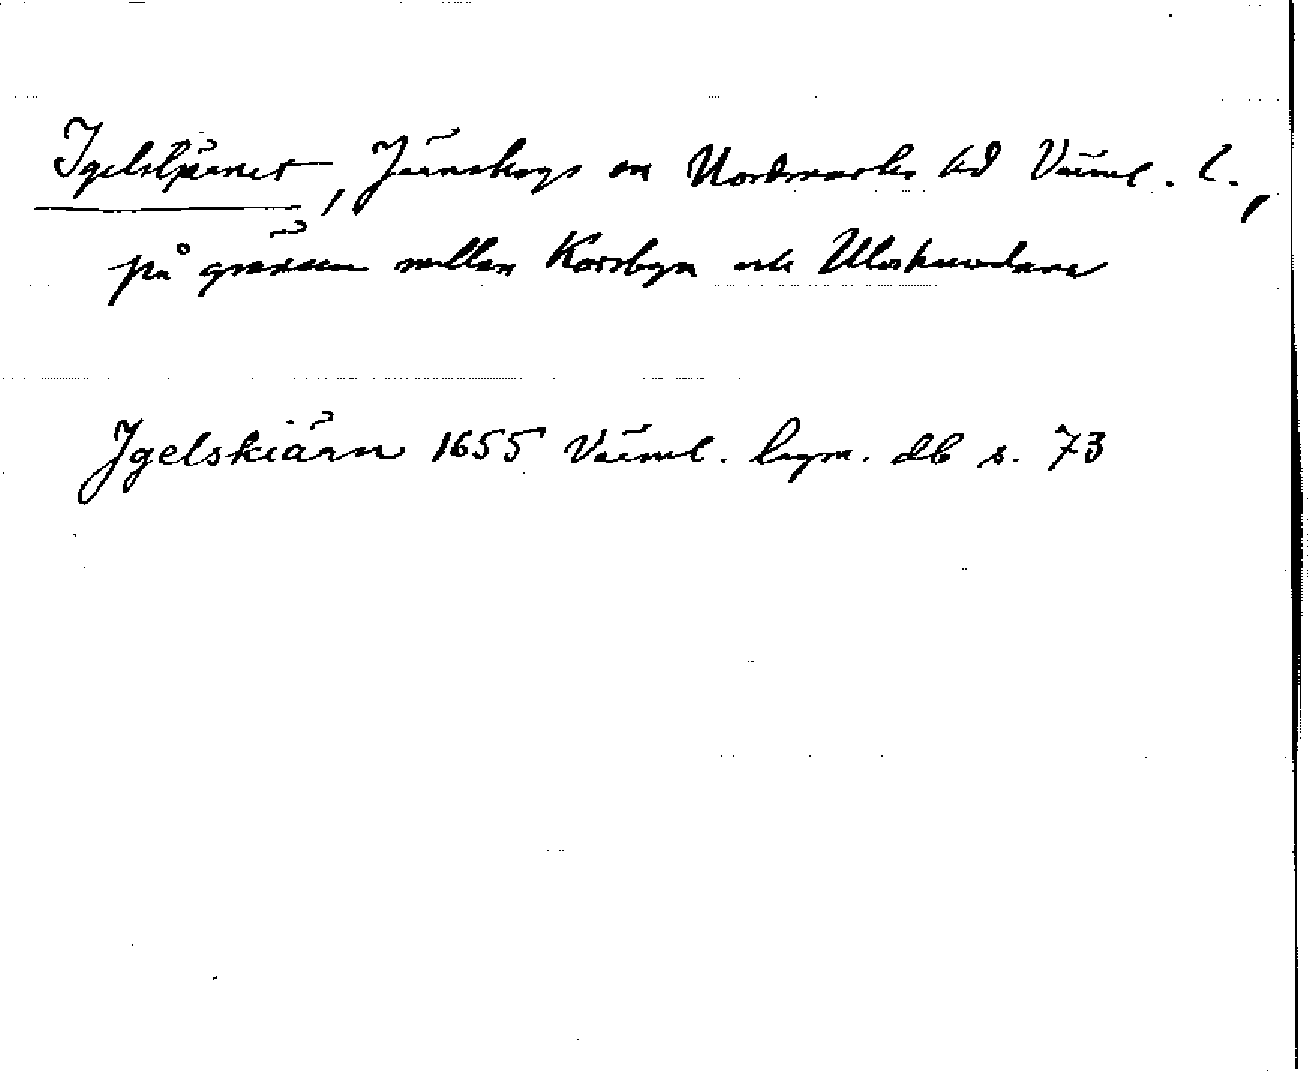 Igelstjärnet, Järnskogs sn Nordmarks hd Värml. l.,
på gränsen mellan Korsbyn och
Igelskiärn 1655 Värml. lagm. db s. 73